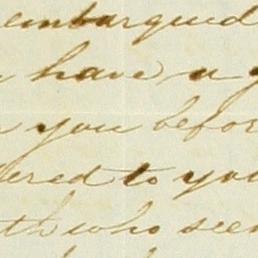 embarqued
have a
you befor
ered to you
th who seem